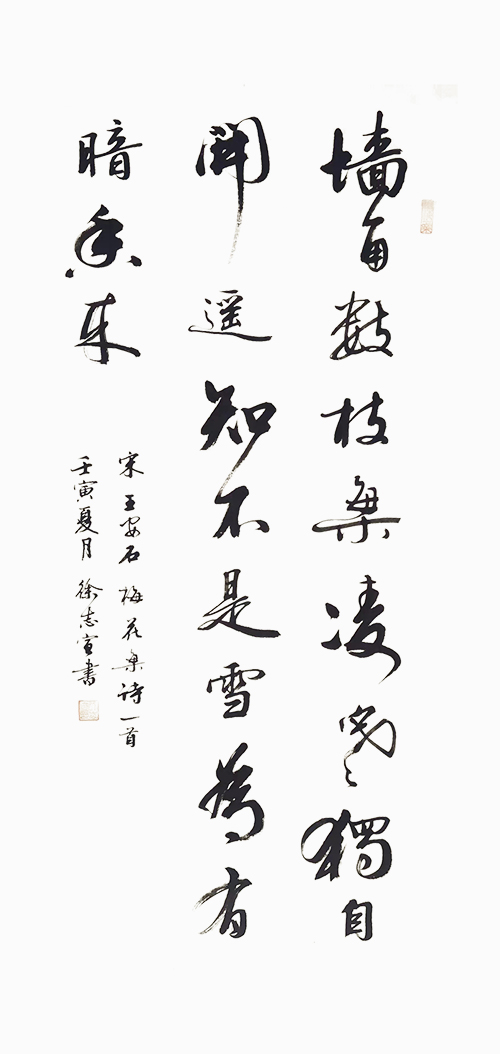 墙角数枝梅凌寒獨自
開遥知不是雪為有
暗香来
宋王安石梅花诗一首
壬寅夏月徐志宣書